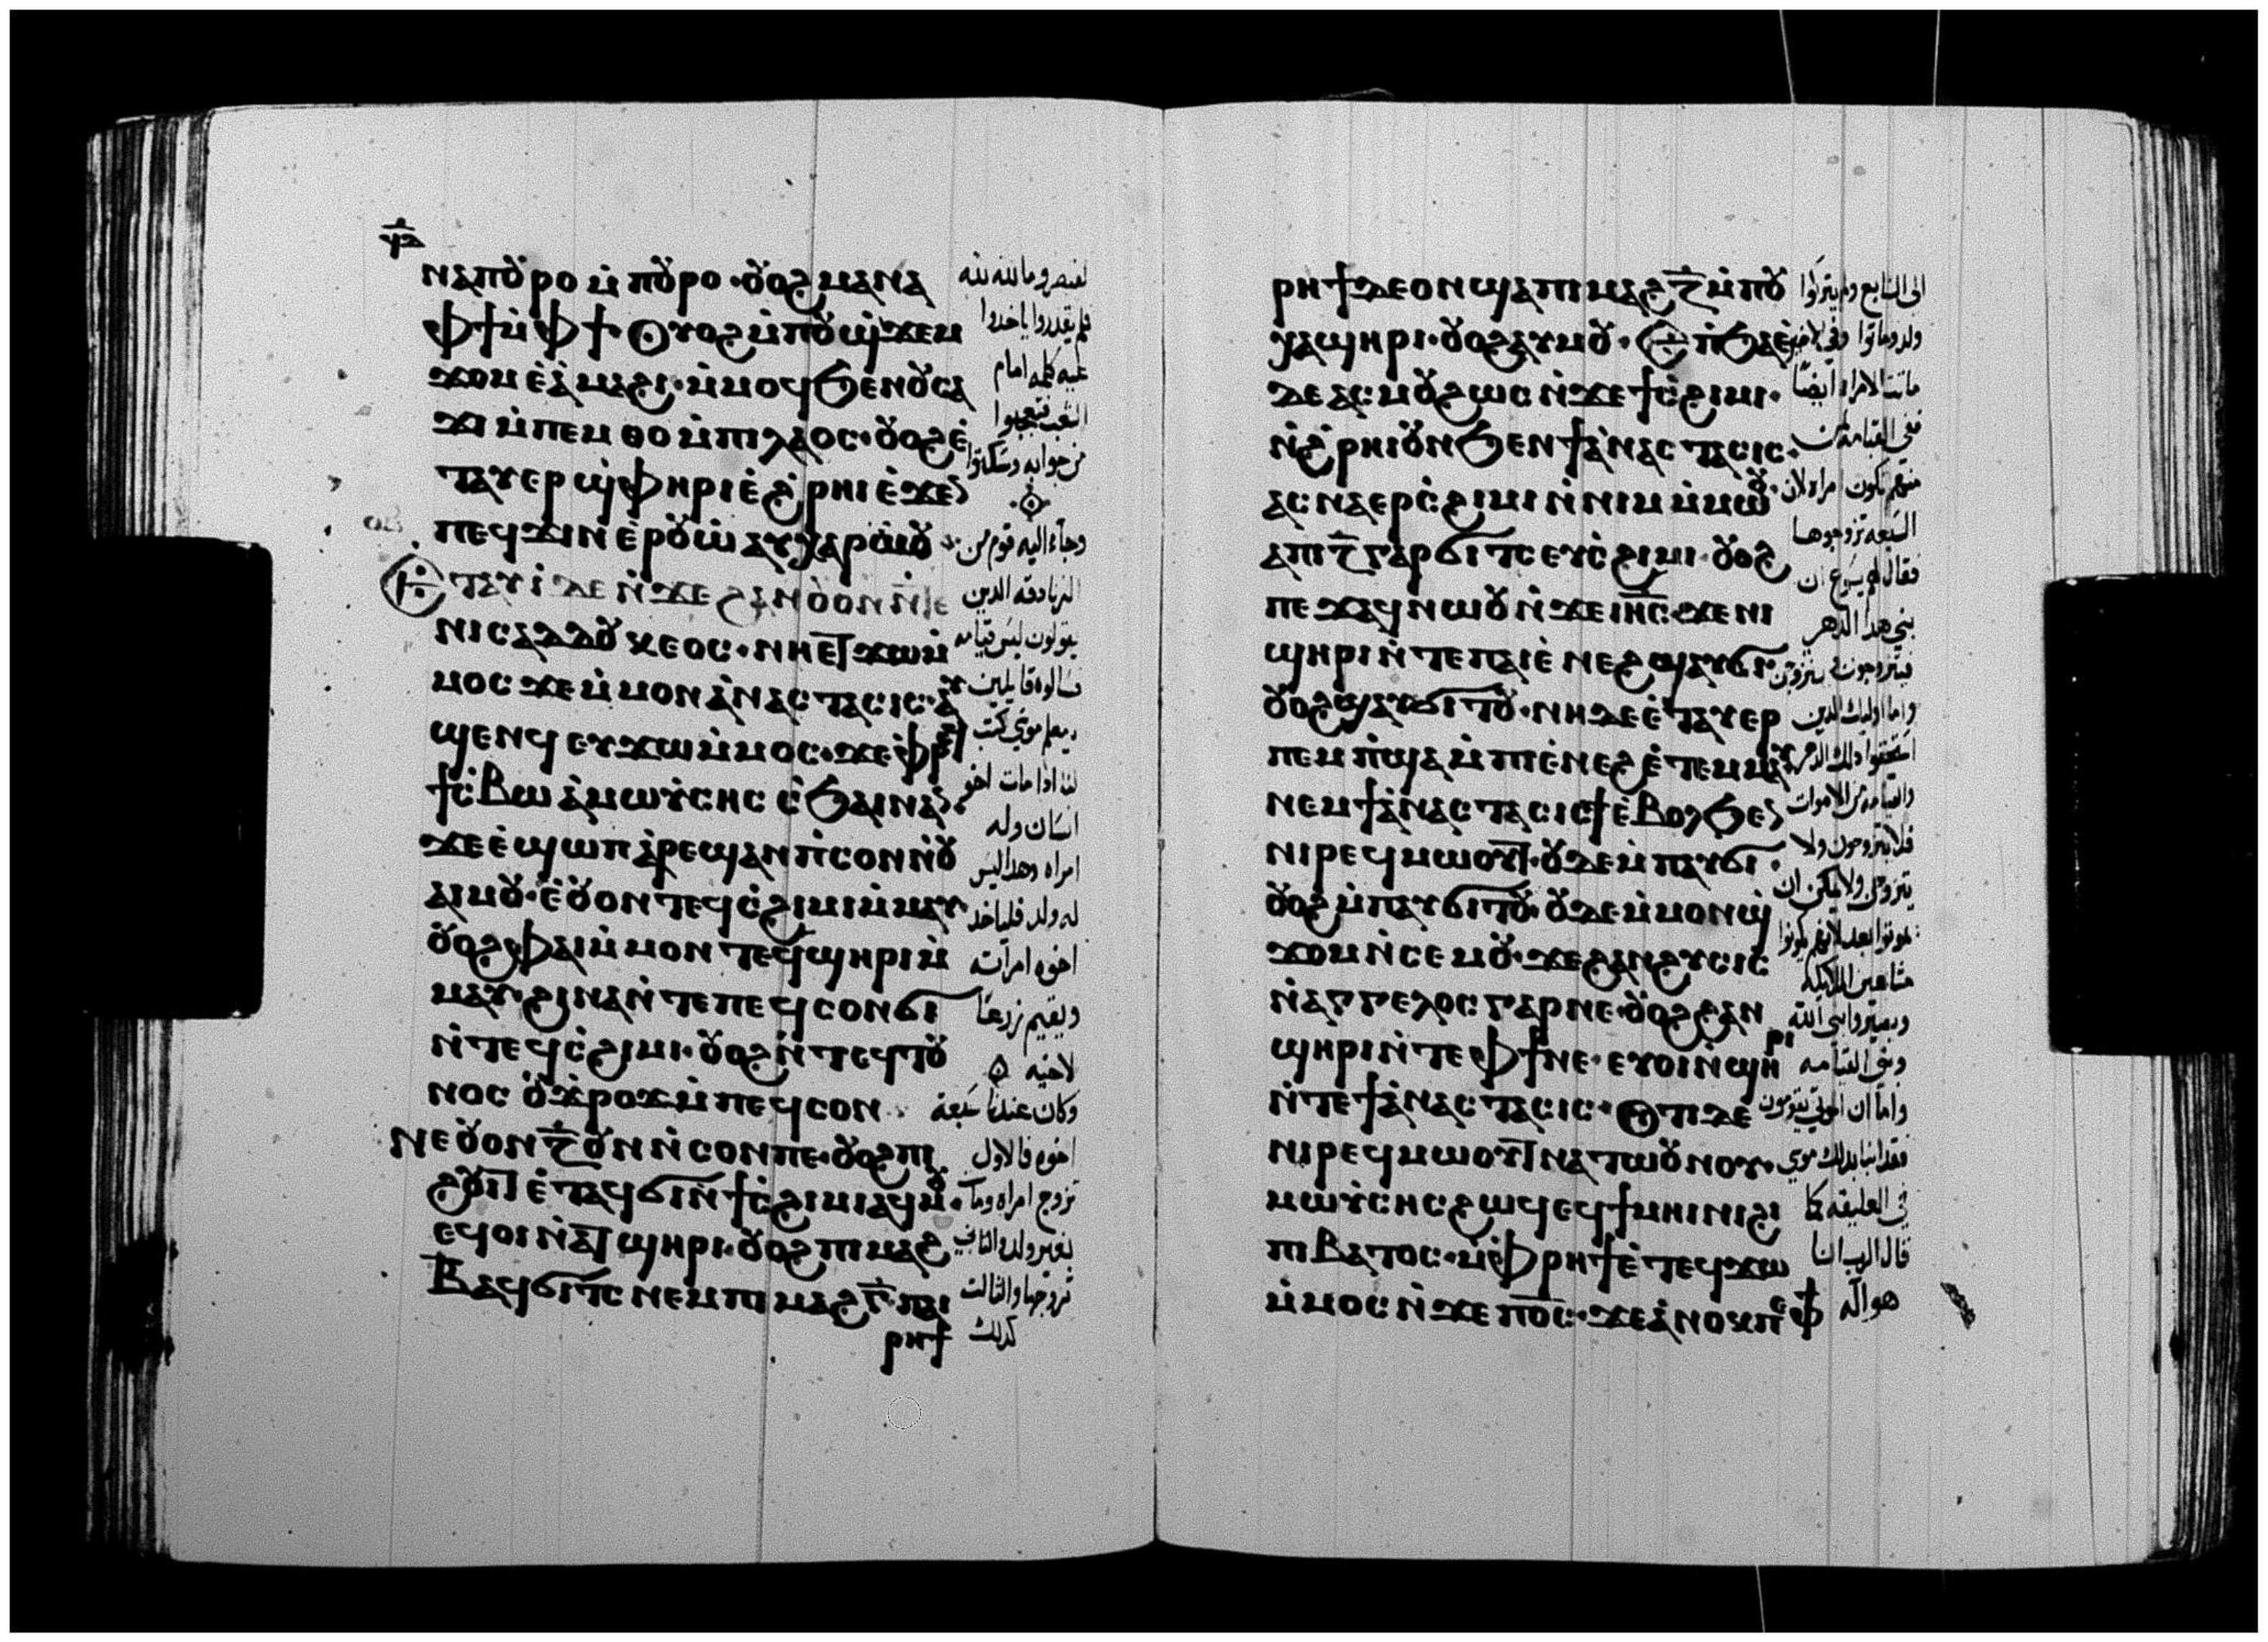 ⲛⲁⲡⲟⲩⲣⲟ ⲙ̇ⲡⲟⲩⲣⲟ · ⲟⲩⲟϩ ⲙⲁ ⲛⲁ
ⲫϯ ⲙ̇ⲫϯ · ⲟⲩⲟϩ ⲙ̇ⲡⲟⲩϣ̇ϫⲉⲙ
ϫⲟⲙ ⲉ̇ⲁ̇ⲙⲁϩⲓ · ⲙ̇ⲙⲟϥ ϧⲉⲛ ⲟⲩⲥⲁ
ϫⲓ ⲙ̇ⲡⲉⲙⲑⲟ ⲙ̇ⲡⲓⲗⲁⲟⲥ · ⲟⲩⲟϩ ⲉ̇
ⲧⲁⲩⲉⲣϣ̇ⲫⲏⲣⲓ ⲉ̇ϩ̇ⲣⲏⲓ ⲉ̇ϫⲉ
ⲡⲉϥϫⲓⲛⲉ̇ⲣⲟⲩⲱ̇ ⲁⲩⲭⲁⲣⲱⲟⲩ
ⲧⲁⲩⲓ̇ ⲇⲉ ⲛ̇ϫⲉ ϩⲁⲛⲟⲩⲟⲛ ⲛ̇ⲧⲉ
ⲛⲓⲥⲁⲇⲇⲟⲩⲕⲉⲟⲥ · ⲛⲏⲉⲧϫⲱ ⲙ̇
ⲙⲟⲥ ϫⲉ ⲙ̇ⲙⲟⲛ ⲁ̇ⲛⲁⲥⲧⲁⲥⲓⲥ · ⲁⲩ
ϣⲉⲛϥ ⲉⲩϫⲱ ⲙ̇ⲙⲟⲥ · ϫⲉ ⲫⲣⲉϥ
ϯⲥ̇ⲃⲱ ⲁ̇ ⲙⲱⲩ̇ⲥⲏⲥ ⲥ̇ϧⲁⲓ ⲛⲁⲛ
ϫⲉ ⲉ̇ϣⲱⲡ ⲁ̇ⲣⲉϣⲁⲛ ⲡ̇ⲥⲟⲛ ⲛ̇ⲟⲩ
ⲁⲓ ⲙⲟⲩ · ⲉ̇ⲟⲩⲟⲛ ⲧⲉϥⲥ̇ϩⲓⲙⲓ ⲙ̇ⲙⲁⲩ
ⲟⲩⲟϩ ⲫⲁⲓ ⲙ̇ⲙⲟⲛ ⲧⲉϥϣⲏⲣⲓ ⲙ̇
ⲙⲁⲩ · ϩⲓⲛⲁ ⲛ̇ⲧⲉ ⲡⲉϥⲥⲟⲛ ϭⲓ
ⲛ̇ⲧⲉϥⲥ̇ϩⲓⲙⲓ · ⲟⲩⲟϩ ⲛ̇ⲧⲉϥⲧⲟⲩ
ⲛⲟⲥ ⲟⲩϫ̇ⲣⲟϫ ⲙ̇ⲡⲉϥⲥⲟⲛ
ⲛⲉ ⲟⲩⲟⲛ ⲍ̄ ⲟⲩⲛ ⲛ̇ⲥⲟⲛ ⲡⲉ · ⲟⲩⲟϩ ⲡⲓ
ϩⲟⲩⲓⲧ ⲉ̇ⲧⲁϥϭⲓ ⲛ̇ϯⲥ̇ϩⲓⲙⲓ ⲁϥⲙⲟⲩ
ⲉϥⲟⲓ ⲛ̇ⲁⲧϣⲏⲣⲓ · ⲟⲩⲟϩ ⲡⲓⲙⲁϩ
ⲃ̄ ⲁϥϭⲓⲧⲥ ⲛⲉⲙ ⲡⲓⲙⲁϩⲅ̄ · ⲡⲁⲓ
ⲣⲏϯ
لقيصر وما لله لله
فلم يقدروا ياخدوا
عليه كلمه امام
الشعب فتعجبوا
من جوابه وسكتوا
وجاء اليه قوم من
الزنادقه الدين
يقولون ليس قيامه
فسالوه قايلين
يامعلم موسي كتب
لنا ادا مات اخو
انسان وله
امراه وهدا ليس
له ولد فلياخد
اخوه امراته
ويقيم زرعا
لاخيه
وكان عندنا سبعه
اخوه فالاول
تزوج امراه ومات
بغير ولد والتاني
تزوجها والتالت
كدلك
ⲣⲏϯ ⲇⲉ ⲟⲛ ϣⲁ ⲡⲓⲙⲁϩⲍ̄ ⲙ̇ⲡⲟⲩ
ⲭⲁϣⲏⲣⲓ · ⲟⲩⲟϩ ⲁⲩⲙⲟⲩ · ⲉ̇ⲡ̇ϧⲁⲉ̇
ⲇⲉ ⲁⲥⲙⲟⲩ ϩⲱⲥ ⲛ̇ϫⲉ ϯⲥ̇ϩⲓⲙⲓ ·
ⲛ̇ϩ̇ⲣⲏⲓ ⲟⲩⲛ ϧⲉⲛ ϯⲁ̇ⲛⲁⲥⲧⲁⲥⲓⲥ ·
ⲁⲥⲛⲁⲉⲣⲥ̇ϩⲓⲙⲓ ⲛ̇ⲛⲓⲙ ⲙ̇ⲙⲱⲟⲩ ·
ⲁ ⲡⲓⲍ̄ ⲅⲁⲣ ϭⲓⲧⲥ ⲉⲩⲥ̇ϩⲓⲙⲓ · ⲟⲩⲟϩ
ⲡⲉϫⲁϥ ⲛⲱⲟⲩ ⲛ̇ϫⲉ ⲓⲏ̄ⲥ̄ · ϫⲉ ⲛⲓ
ϣⲏⲣⲓ ⲛ̇ⲧⲉ ⲡⲁⲓⲉ̇ⲛⲉϩ ϣⲁⲩϭⲓ ·
ⲟⲩⲟϩ ϣⲁⲩϭⲓⲧⲟⲩ · ⲛⲏ ⲇⲉ ⲉ̇ⲧⲁⲩⲉⲣ
ⲡⲉⲙⲡ̇ϣⲁ ⲙ̇ⲡⲓⲉ̇ⲛⲉϩ ⲉ̇ⲧⲉⲙⲙⲁⲩ
ⲛⲉⲙ ϯⲁ̇ⲛⲁⲥⲧⲁⲥⲓⲥ ϯⲉ̇ⲃⲟⲗ ϧⲉⲛ
ⲛⲓⲣⲉϥⲙⲱⲟⲩⲧ · ⲟⲩⲇⲉ ⲙ̇ⲡⲁⲩϭⲓ ·
ⲟⲩⲟϩ ⲙ̇ⲡⲁⲩϭⲓⲧⲟⲩ · ⲟⲩⲇⲉ ⲙ̇ⲙⲟⲛ ϣ̇
ϫⲟⲙ ⲛ̇ⲥⲉⲙⲟⲩ · ϫⲉ ϩⲁⲛϩⲩⲥⲓⲥ
ⲛ̇ⲁⲅⲅⲉⲗⲟⲥ ⲅⲁⲣ ⲛⲉ · ⲟⲩⲟϩ ϩⲁⲛ
ϣⲏⲣⲓ ⲛ̇ⲧⲉ ⲫϯ ⲛⲉ · ⲉⲩⲟⲓ ⲛ̇ϣⲏⲣⲓ
ⲛ̇ⲧⲉ ϯⲁ̇ⲛⲁⲥⲧⲁⲥⲓⲥ · ⲟⲧⲓ ⲇⲉ
ⲛⲓⲣⲉϥⲙⲱⲟⲩⲧ ⲛⲁⲧⲱⲟⲩⲛⲟⲩ ·
ⲙⲱⲩ̇ⲥⲏⲥ ϩⲱϥ ⲉϥϯⲙⲏⲓⲛⲓ ϩⲓ
ⲡⲓⲃⲁⲧⲟⲥ · ⲙ̇ⲫⲣⲏϯ ⲉ̇ⲧⲉϥϫⲱ
ⲙ̇ⲙⲟⲥ ⲛ̇ϫⲉ ⲡⲟ̄ⲥ̄ · ϫⲉ ⲁ̇ⲛⲟⲕ ⲡⲉ ⲫϯ
الى السابع ولم يتركوا
ولد وماتوا وفي الاخير
ماتت الامراه ايضا
ففي القيامه لمن
منهم تكون امراه لان
السبعه تزوجوها
فقال لهم يسوع ان
بني هدا الدهر
فيتزوجون
واما اوليك الدين
استحقوا دلك الدهر
والقيامه من الاموات
فلا يتزوجون ولا
يتزوجن ولا يمكن ان
يموتوا بعد لانهم يكونوا
متل الملايكه
ويصيروا بني الله
وبني القيامه
واما ان الموتى يقومون
فقد انبا بدلك موسي
في العليقه كما
قال الرب انا
هو اله